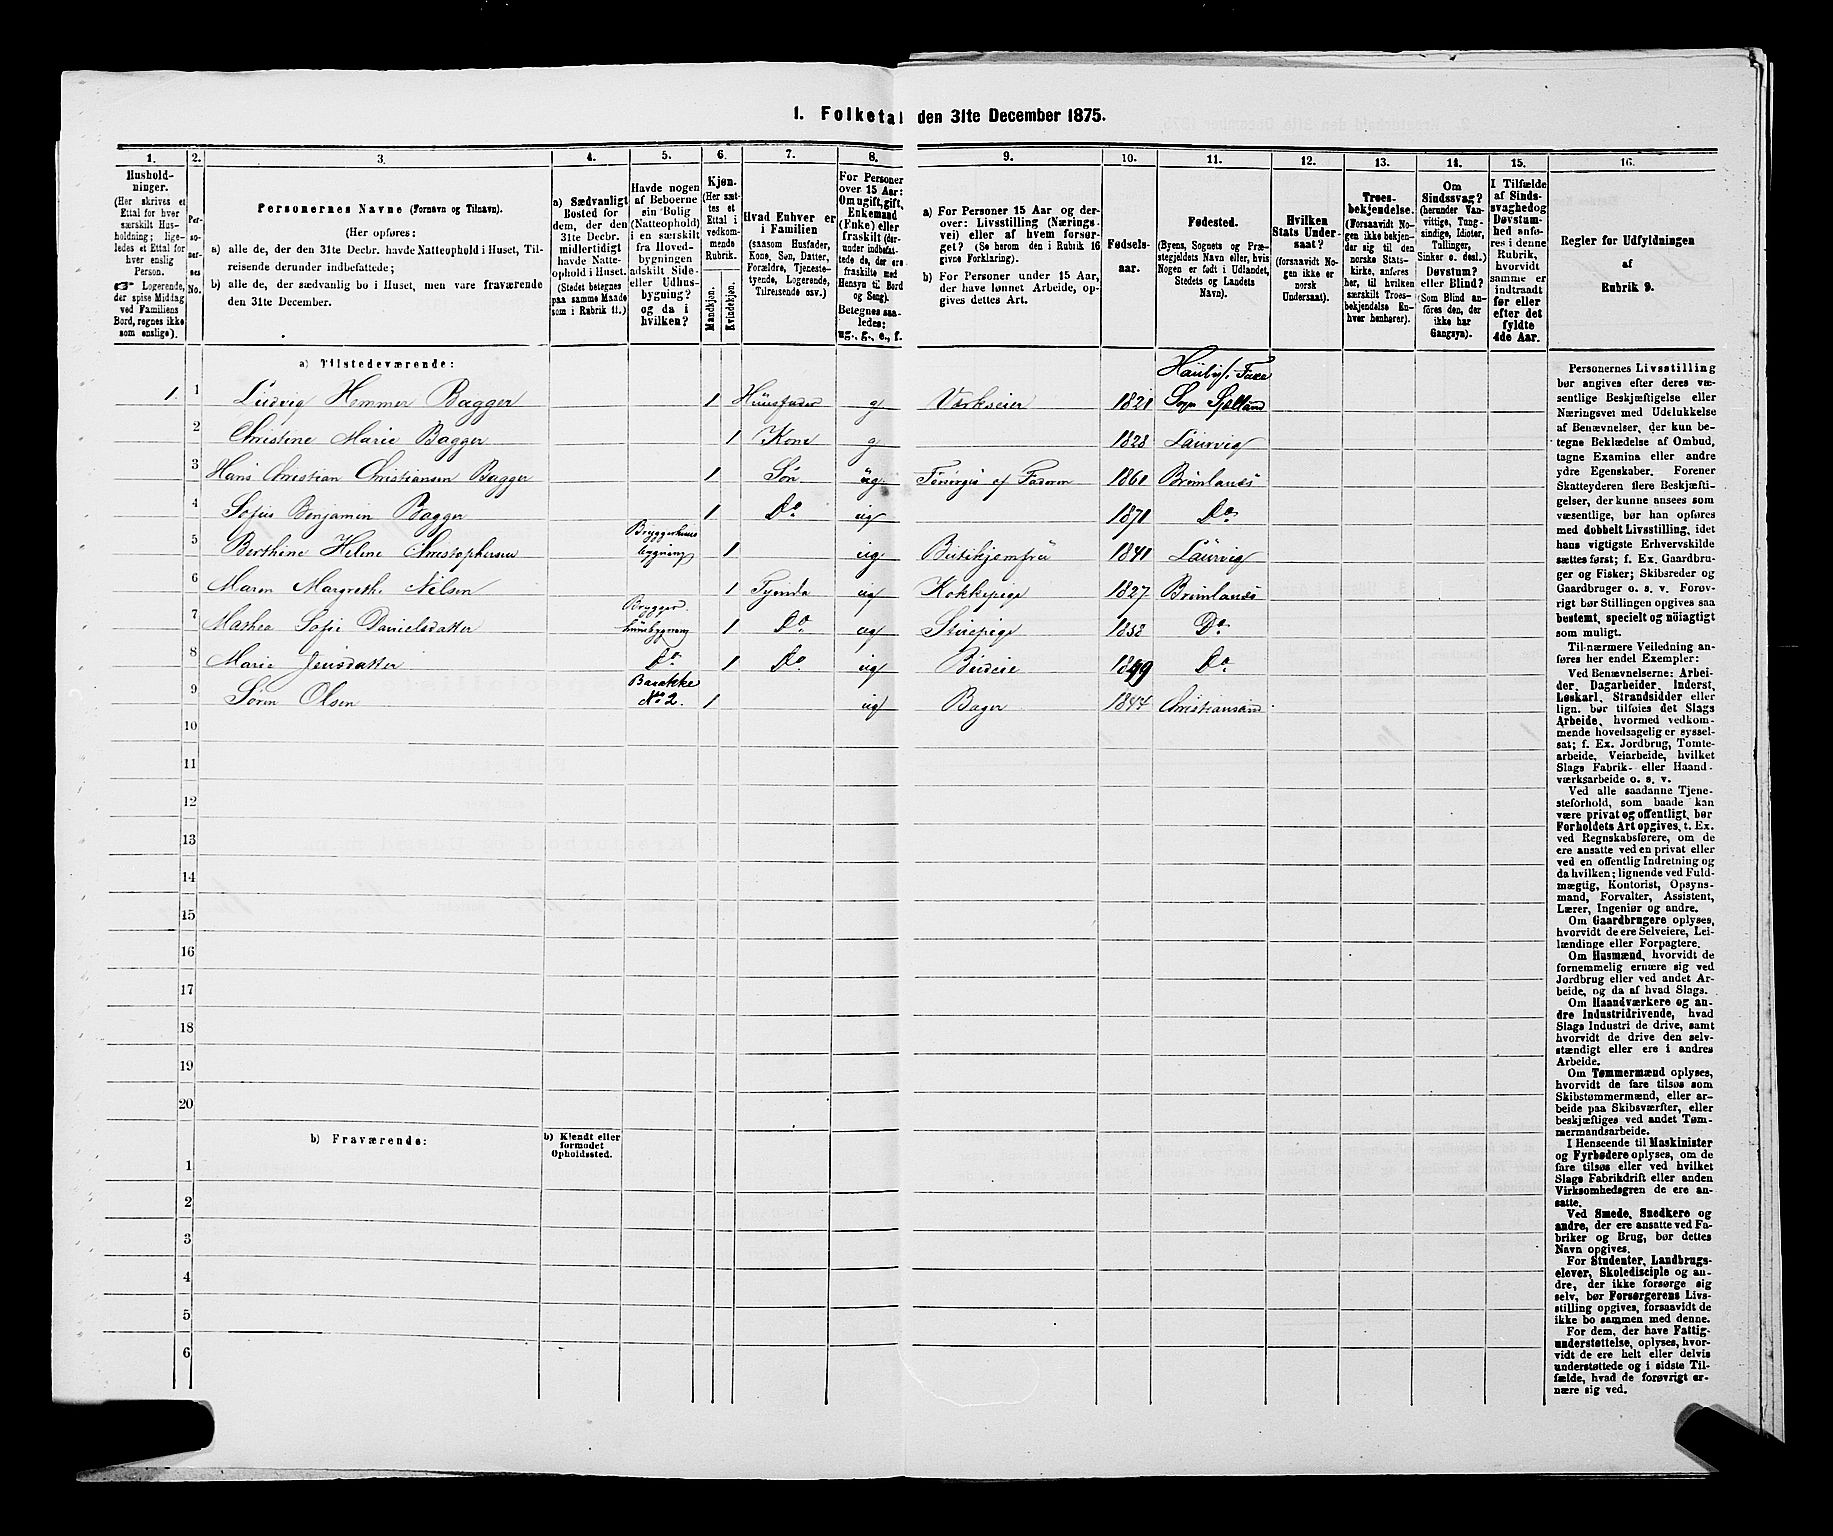 1. Folketal den 31te December 1875.
1. 2. 3. 4. 5. 6. 7. 8. 9. 10. 11. 12. 13. 14. 15. 16.
Hushold-
ninger.
(Her skrives et
Ettal for hver
særskilt Hus-
holdning; lige-
ledes et Ettal for
hver enslig
Person.
☞ Logerende,
der spise Middag
ved Familiens
Bord, regnes ikke
som enslige).
Per-
so-
ner-
nes
No.
Personernes Navne (Fornavn og Tilnavn).
(Her opføres:
a) alle de, der den 31te Decbr. havde Natteophold i Huset, Til-
reisende derunder indbefattede;
b) alle de, der sædvanlig bo i Huset, men vare fraværende
den 31te December.
a) Sædvanligt
Bosted for
dem, der den
31te Decbr.
midlertidigt
havde Natte-
ophold i Huset.
(Stedet betegnes
paa samme Maade
som i Rubrik 11.)
Havde nogen
af Beboerne
sin Bolig
(Natteophold)
i en særskilt
fra Hoved-
bygningen
adskilt Side-
eller Udhus-
bygning?
og da i
hvilken?
Kjøn.
(Her sæt-
tes et
Ettal i
vedkom-
mende
Rubrik.
Mandkjøn.
Kvindekjøn.
Hvad Enhver er
i Familien
(saasom Husfader,
Kone, Søn, Datter,
Forældre, Tjeneste-
tyende, Logerende,
Tilreisende osv.)
For Personer
over 15 Aar:
Om ugift, gift,
Enkemand
(Enke) eller
fraskilt (der-
under indbefat-
tede de, der ere
fraskilte med
Hensyn til Bord
og Seng).
Betegnes saa-
ledes:
ug., g., e., f.
a) For Personer 15 Aar og der-
over: Livsstilling (Nærings-
vei) eller af hvem forsør-
get? (Se herom den i Rubrik 16
givne Forklaring).
b) For Personer under 15 Aar,
der have lønnet Arbeide, op-
gives dettes Art.
Fødsels-
aar.
Fødested.
(Byens, Sognets og Præ-
stegjeldets Navn eller, hvis
Nogen er født i Udlandet,
Stedets og Landets
Navn).
Hvilken
Stats Under-
saat?
(forsaavidt No-
gen ikke er
norsk
Undersaat).
Troes-
bekjendelse.
(Forsaavidt No-
gen ikke bekjen-
der sig til den
norske Stats-
kirke, anføres
her, til hvilken
særskilt Troes-
bekjendelse En-
hver henhører).
Om
Sindssvag?
(herunder Van-
vittige, Tung-
sindige, Idioter,
Tullinger,
Sinker o. desl.)
Døvstum?
eller Blind?
(Som Blind an-
føres den, der
ikke har
Gangsyn).
I Tilfælde
af Sinds-
svaghed og
Døvstum-
hed anfø-
res i denne
Rubrik,
hvorvidt
samme er
indtraadt
før eller
efter det
fyldte
4de Aar.
Regler for Udfyldningen
af
Rubrik 9.
a) Tilstedeværende:
1. 1 Ludvig Hemmer Bagger 1 Huusfader g Værkseier 1821 Haubys. Faxe Sogn Sjælland
2 Christine Marie Bagger 1 Kone g 1828 Laurvig
3 Hans Christian Christiansen Bagger 1 Søn ug 1860 Brunlanæs
4 Sofus Benjamin Bagger 1 Do ug 1871 Do
5 Berthine Helene Christophersen Bryggerhuus bygning 1 ug Butikjomfru 1841 Laurvig
6 Maren Margrethe Nilsen 1 Tjenda ug Kokkepige 1827 Brunlanæs
7 Mathea Sofie Danielsdatter 1 Do ug Stuepige 1858 Do
8 Marie Jensdatter Do 1 Do ug Budeie 1849 Do
9 Søren Olsen Barakke No 2. 1 ug Bager 1844 Christiansand
10
11
12
13
14
15
16
17
18
19
20
b) Fraværende:
b) Kjendt eller
formodet
Opholdssted.
1
2
3
4
5
6
Personernes Livsstilling
bør angives efter deres væ-
sentlige Beskjæftigelse eller
Næringsvei med Udelukkelse
af Benævnelser, der kun be-
tegne Beklædelse af Ombud,
tagne Examina eller andre
ydre Egenskaber. Forener
Skatteyderen flere Beskjæfti-
gelser, der kunne ansees som
væsentlige, bør han opføres
med dobbelt Livsstilling, idet
hans vigtigste Erhvervskilde
sættes først; f. Ex. Gaardbru-
ger og Fisker; Skibsreder og
Gaardbruger o. s. v. Forøv-
rigt bør Stillingen opgives saa
bestemt, specielt og nöiagtigt
som muligt.
Til nærmere Veiledning an-
føres her endel Exempler:
Ved Benævnelserne: Arbei-
der, Dagarbeider, Inderst,
Løskarl, Strandsidder eller
lign. bør tilføies det Slags
Arbeide, hvormed vedkom-
mende hovedsagelig er syssel-
sat; f. Ex. Jordbrug, Tomte-
arbeide, Veiarbeide, hvilket
Slags Fabrik- eller Haand-
værksarbeide o. s. v.
Ved alle saadanne Tjene-
steforhold, som baade kan
være privat og offentligt, bør
Forholdets Art opgives, t. Ex.
ved Regnskabsførere, om de
ere ansatte ved en privat eller
ved en offentlig Indretning og
da hvilken; lignende ved Fuld-
mægtig, Kontorist, Opsyns-
mand, Forvalter, Assistent,
Lærer, Ingeniør og andre.
Om Gaardbrugere oplyses,
hvorvidt de ere Selveiere, Lei-
lændinge eller Forpagtere.
Om Husmænd, hvorvidt de
fornemmelig ernære sig ved
Jordbrug eller ved andet Ar-
beide, og da af hvad Slags.
Om Haandværkere og an-
dre Industridrivende, hvad
Slags Industri de drive, samt
hvorvidt de drive den selv-
stændigt eller ere i andres
Arbeide.
Om Tømmermænd oplyses,
hvorvidt de fare tilsøs som
Skibstømmermænd, eller ar-
beide paa Skibsværfter, eller
beskjæftiges ved andet Tøm-
mermandsarbeide.
I Henseende til Maskinister
og Fyrbødere oplyses, om de
fare tilsøs eller ved hvilket
Slags Fabrikdrift eller anden
Virksomhedsgren de ere an-
satte.
Ved Smede, Snedkere og
andre, der ere ansatte ved Fa-
briker og Brug, bør dettes
Navn opgives.
For Studenter, Landbrugs-
elever, Skoledisciple og an-
dre, der ikke forsørge sig
selv, bør Forsørgerens Livs-
stilling opgives, forsaavidt de
ikke bo sammen med denne.
For dem, der have Fattig-
understøttelse, oplyses, hvor-
vidt de ere helt eller delvis
understøttede og i sidste Til-
fælde, hvad de forøvrigt er-
nære sig ved.